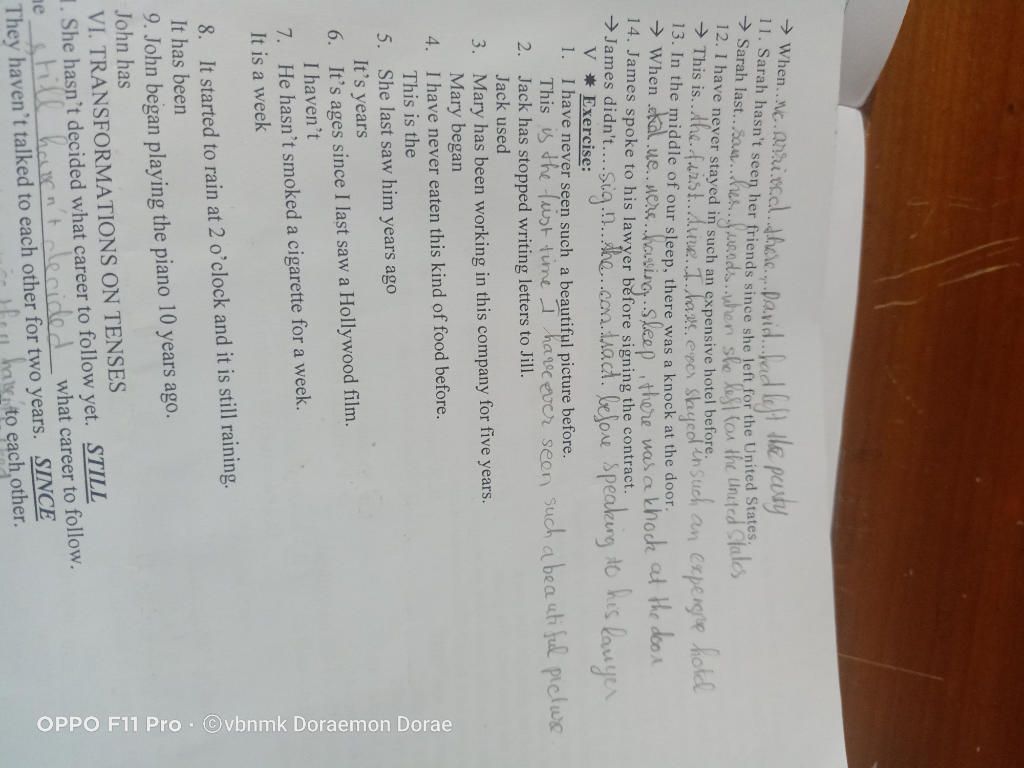 → When...we arrived...there...David...had left the party
11. Sarah hasn't seen her friends since she left for the United States.
→ Sarah last...saw...her...friends...when she left for the United States
12. I have never stayed in such an expensive hotel before.
→ This is...the...first...time...I...have...ever stayed in such an hotel
13. In the middle of our sleep, there was a knock at the door.
→ When we...were...having...sleep, there was a knock at the door
14. James spoke to his lawyer before signing the contract.
→ James didn't....sign...the...contract before speaking to his lawyer
V ✷ Exercise:
1. I have never seen such a beautiful picture before.
This is the first time I have ever seen such a beautiful picture.
2. Jack has stopped writing letters to Jill.
Jack used
3. Mary has been working in this company for five years.
Mary began
4. I have never eaten this kind of food before.
This is the
5. She last saw him years ago
It's years
6. It's ages since I last saw a Hollywood film.
I haven't
7. He hasn't smoked a cigarette for a week.
It is a week
8. It started to rain at 2 o'clock and it is still raining.
It has been
9. John began playing the piano 10 years ago.
John has
VI. TRANSFORMATIONS ON TENSES
1. She hasn't decided what career to follow yet. STILL
still hasn't decided what career to follow.
They haven't talked to each other for two years. SINCE
They to each other.
OPPO F11 Pro · ©vbnmk Doraemon Dorae